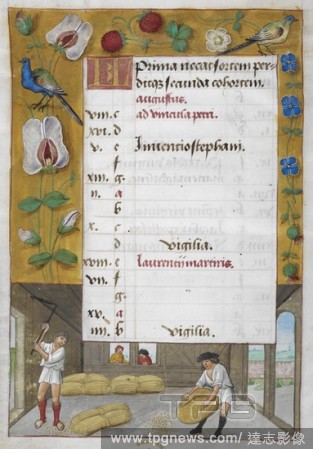 KL Prima necat fortem per-
ditq3 secunda cohortem.
augustus.
viii. c ad vincula petri.
xvi. d
v. e Inventio stephani.
f
xiii. g.
ii. a
b
x. c
d vigilia.
xviii. e laurentii martiris.
vii. f
g.
xv. a
iiii. b vigilia.
TPG
www.tpgnews.com/ 達志影像